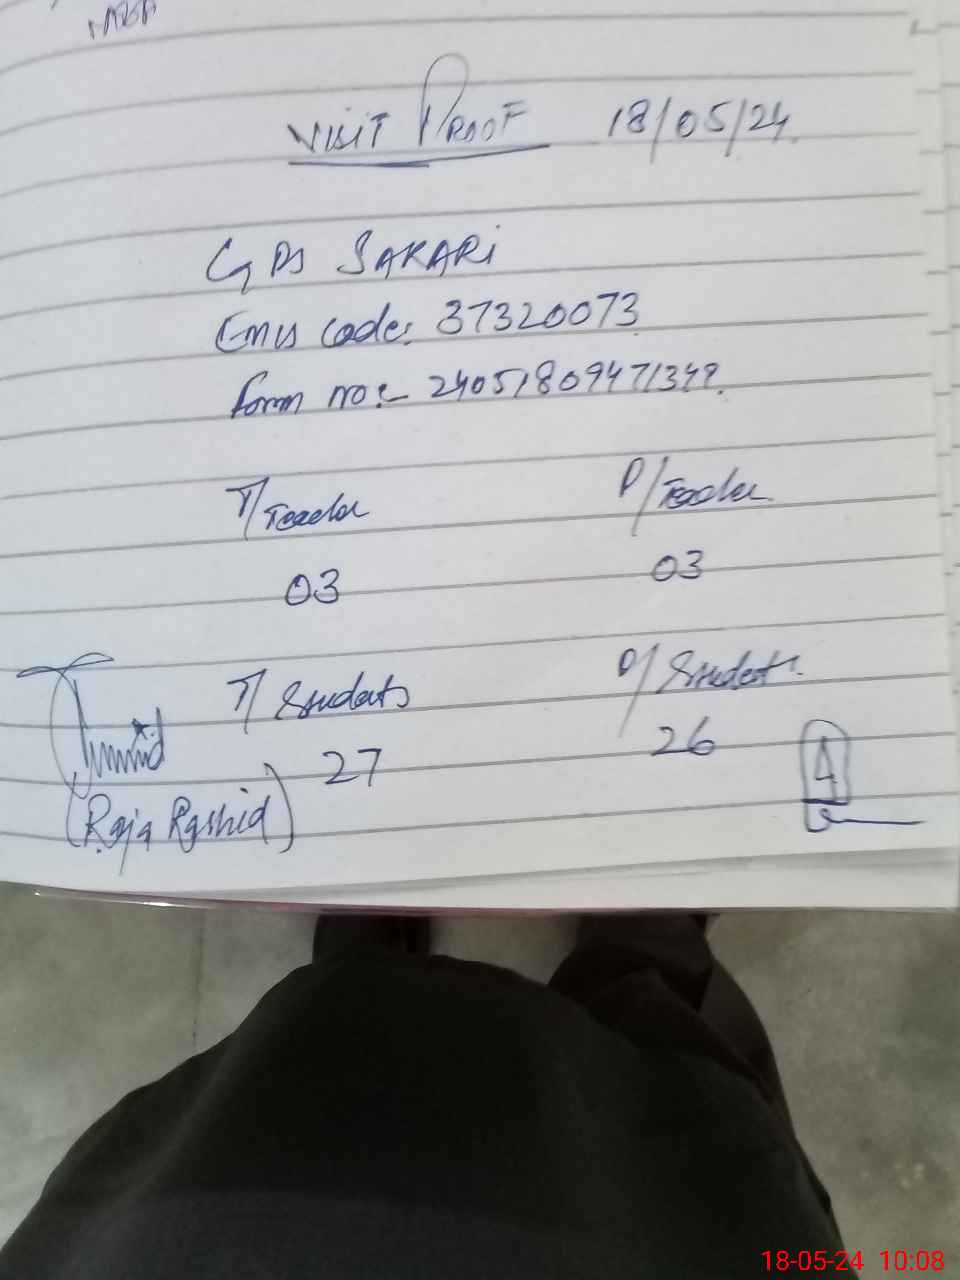 VISIT PROOF 18/05/24
GPS SAKARI
Emis code: 37320073
form no:- 24051809471349
T/Teacher P/Teacher
03 03
T/Students P/Student
27 26
(Raja Rashid)
18-05-24 10:08